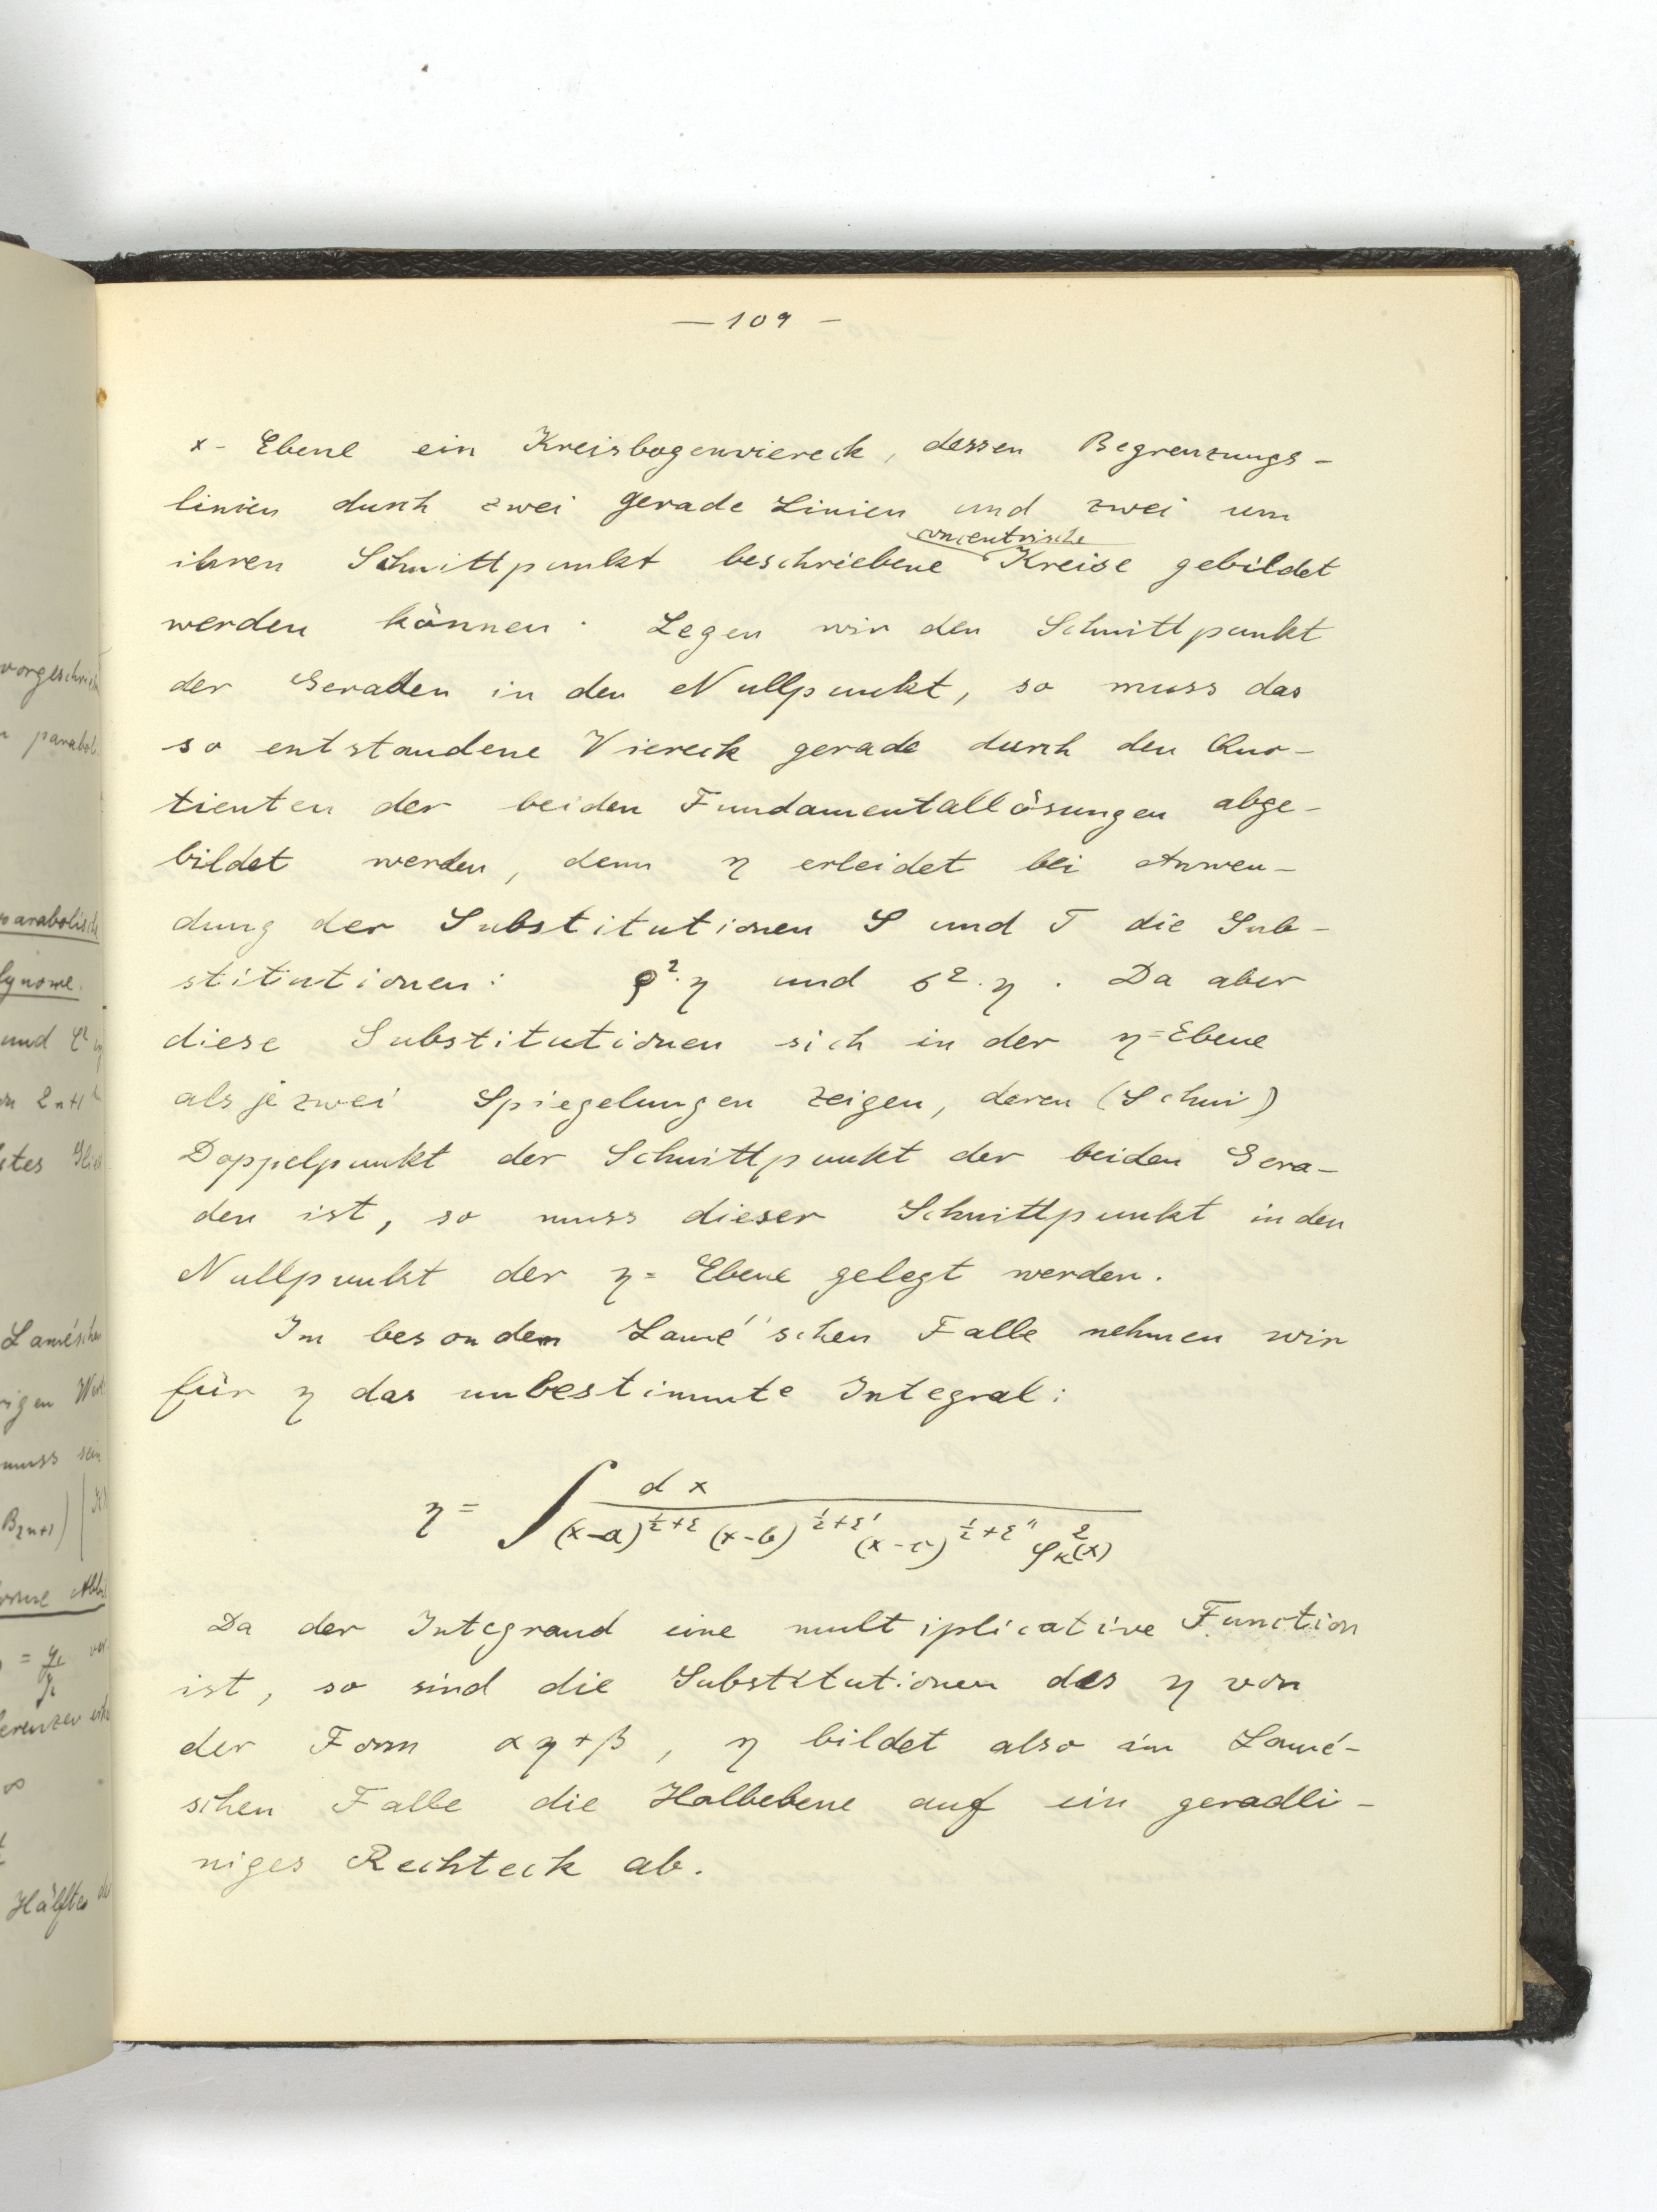 — 109 —
x- Ebene ein Kreisbogenviereck, dessen Begrenzungs-
linien durch zwei gerade Linien und zwei um
concentrische
ihren Schnittpunkt beschriebene Kreise gebildet
werden können. Legen wir den Schnittpunkt
der Geraden in den Nullpunkt, so muss das
so entstandene Viereck gerade durch den Quo-
tienten der beiden Fundamentallösungen abge-
bildet werden, denn η erleidet bei Anwen-
dung der Substitutionen S und T die Sub-
stitutionen: ρ²·η und σ²·η. Da aber
diese Substitutionen sich in der η=Ebene
als je zwei Spiegelungen zeigen, deren (Schni)
Doppelpunkt der Schnittpunkt der beiden Gera-
den ist, so muss dieser Schnittpunkt in den
Nullpunkt der η= Ebene gelegt werden.
Im besondern Lamé'schen Falle nehmen wir
für η das unbestimmte Integral:
η = ∫ dx / (x-a)^{1/2+ε} (x-b)^{1/2+ε'} (x-c)^{1/2+ε''} φ_κ²(x)
Da der Integrand eine multiplicative Function
ist, so sind die Substitutionen des η von
der Form αη+β, η bildet also im Lamé-
schen Falle die Halbebene auf ein geradli-
niges Rechteck ab.
vorgeschrie
parabol
parabolisch
lynome.
und
2n+1
stes Glied
Laméschen
rigen
muss sein
B2n+1)
Hälften